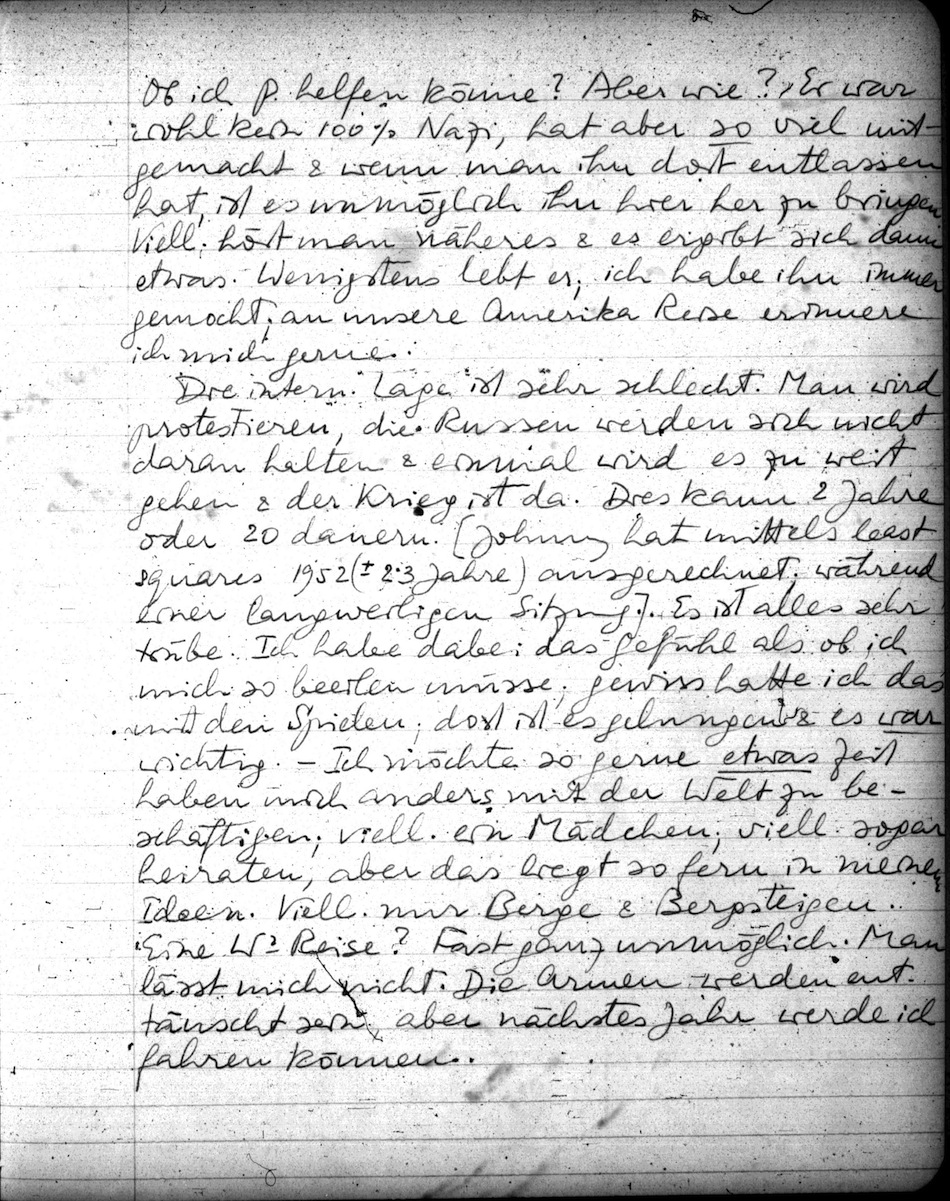 Ob ich P. helfen könne? Aber wie? Er war
wohl kein 100% Nazi, hat aber so viel mit-
gemacht & wenn man ihn dort entlassen
hat, ist es unmöglich ihn hier her zu bringen
Viell. hört man näheres & es ergibt sich dann
etwas. Wenigstens lebt er, ich habe ihn immer
gemocht; an unsere Amerika Reise erinnere
ich mich gerne.
Die intern. Lage ist sehr schlecht. Man wird
protestieren, die Russen werden sich nicht
daran halten & einmal wird es zu weit
gehen & der Krieg ist da. Dies kann 2 Jahre
oder 20 dauern. [Johnny hat mittels least
squares 1952 (± 2·3 Jahre) ausgerechnet, während
einer langweiligen Sitzung]. Es ist alles sehr
trübe. Ich habe dabei das Gefühl als ob ich
mich so beeilen müsse, gewiss hatte ich das
mit den Spielen; dort ist es gelungen & es war
wichtig. – Ich möchte so gerne etwas Zeit
haben mich anders mit der Welt zu be-
schäftigen; viell. ein Mädchen; viell. sogar
heiraten, aber das liegt so fern in meinen
Ideen. Viell. nur Berge & Bergsteigen..
Eine Wn Reise? Fast ganz unmöglich. Man
lässt mich nicht. Die Armen werden ent-
täuscht sein, aber nächstes Jahr werde ich
fahren können..